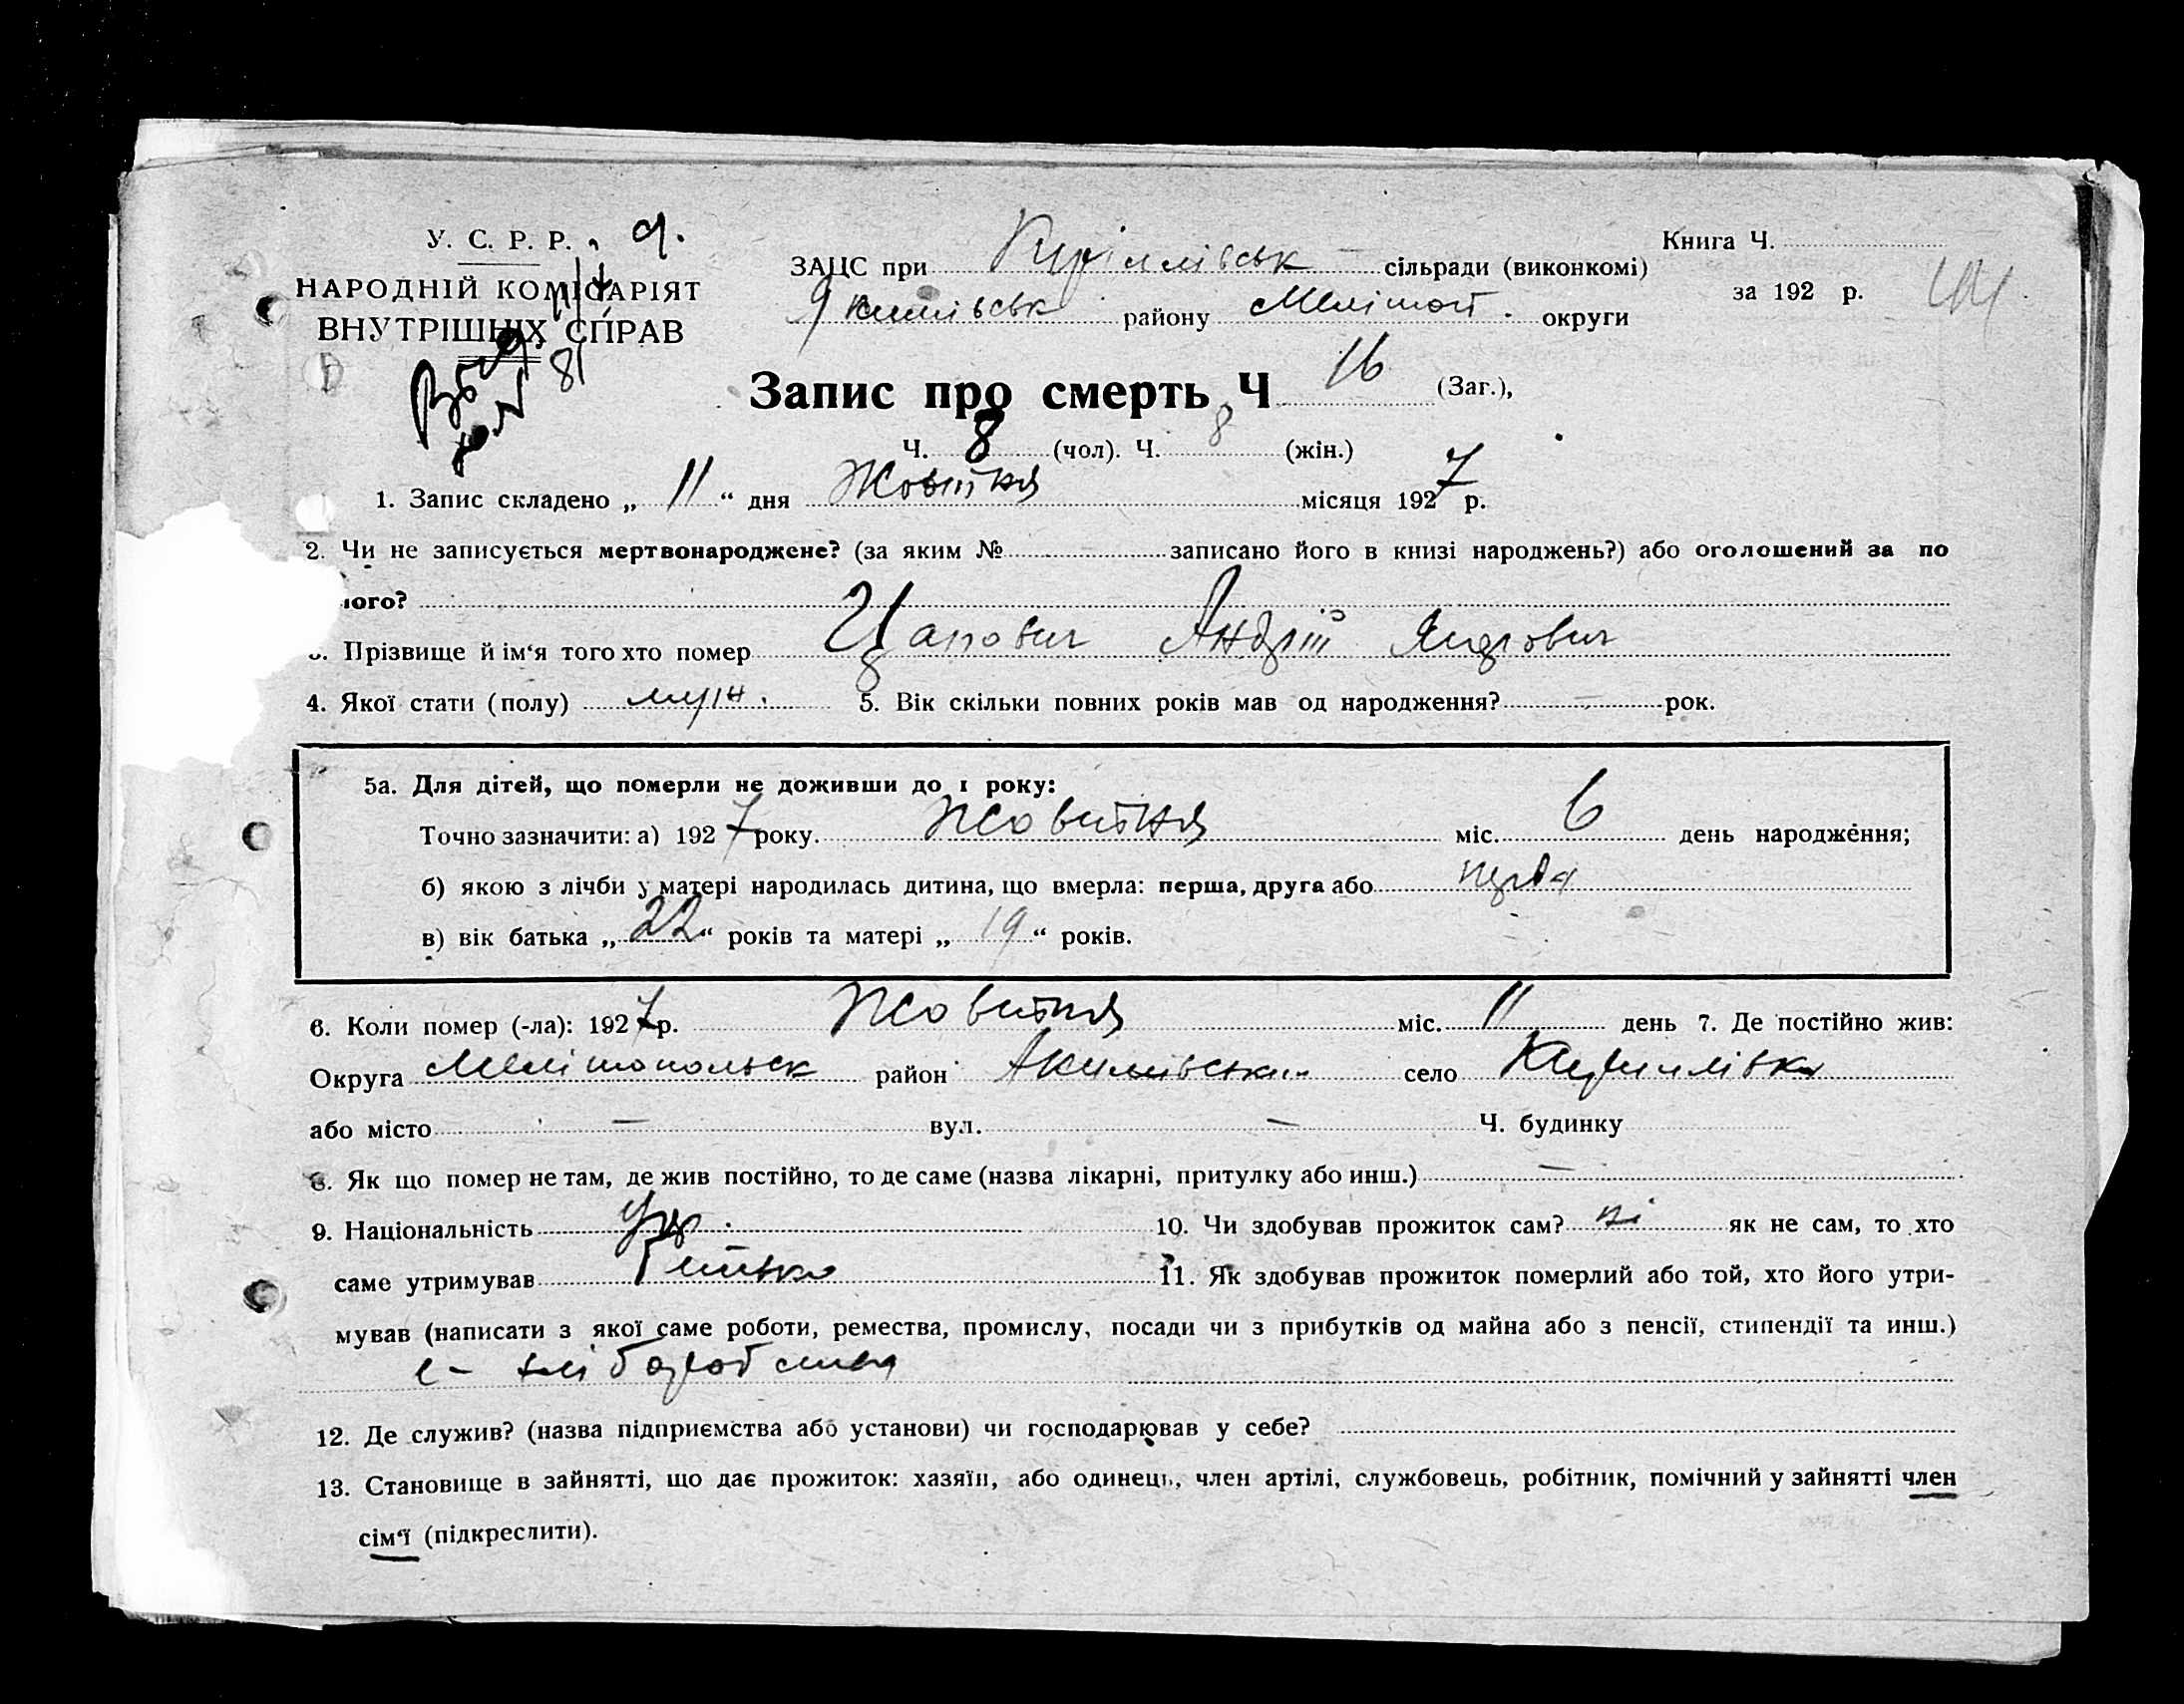 У. С. Р. Р.
НАРОДНІЙ КОМІСАРІЯТ
ВНУТРІШНІХ СПРАВ
81
ЗАЦС при Кирилівськ сільради (виконкомі)
Якимівськ району Мелітоп. округи
Книга Ч.
за 192 р.
Запис про смерть Ч 16 (Заг.),
Ч. 8 (чол). Ч. 8 (жін.)
1. Запис складено „ 11 “ дня Жовтня місяця 1927 р.
2. Чи не записується мертвонароджене? (за яким № записано його в книзі народжень?) або оголошений за по
ього?
3. Прізвище й ім‘я того хто помер Цапович Андрій
4. Якої стати (полу) муж. 5. Вік скільки повних років мав од народження? – рок.
5а. Для дітей, що померли не доживши до 1 року:
Точно зазначити: а) 1927 року. Жовтня міс. 6 день народження;
б) якою з лічби у матері народилась дитина, що вмерла: перша, друга або
в) вік батька „ 22 “ років та матері „ 19 “ років.
6. Коли помер (-ла): 1927 р. Жовтня міс. 11 день 7. Де постійно жив:
Округа Мелітопольськ район Якимівськи село Кирилівка
або місто – вул. – Ч. будинку
8. Як що помер не там, де жив постійно, то де саме (назва лікарні, притулку або инш.) –
9. Національність Укр. 10. Чи здобував прожиток сам? ні як не сам, то хто
саме утримував Батько 11. Як здобував прожиток померлий або той, хто його утри-
мував (написати з якої саме роботи, ремества, промислу, посади чи з прибутків од майна або з пенсії, стипендії та инш.)
хліборобства
12. Де служив? (назва підприємства або установи) чи господарював у себе?
13. Становище в зайнятті, що дає прожиток: хазяїн, або одинець, член артілі, службовець, робітник, помічний у зайнятті член
сім‘ї (підкреслити).